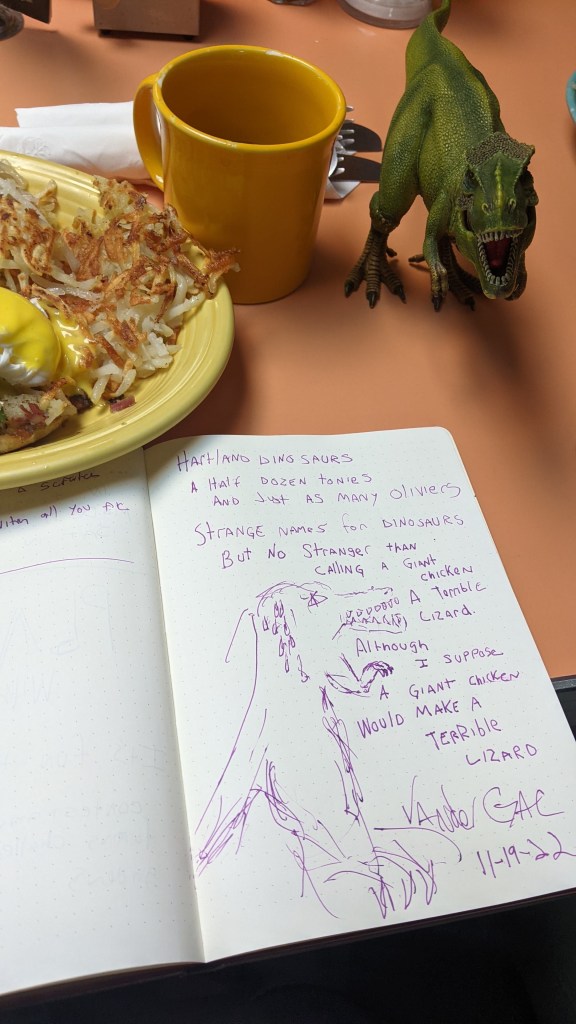 a scratch
all you
HARTLAND DINOSAURS
A HALF DOZEN TONIES
AND JUST AS MANY OLIVIERS
STRANGE NAMES FOR DINOSAURS
BUT NO STRANGER THAN
CALLING A GIANT
CHICKEN
A TERRIBLE
LIZARD.
ALTHOUGH
I SUPPOSE
A GIANT CHICKEN
WOULD MAKE A
TERRIBLE
LIZARD
11-19-22